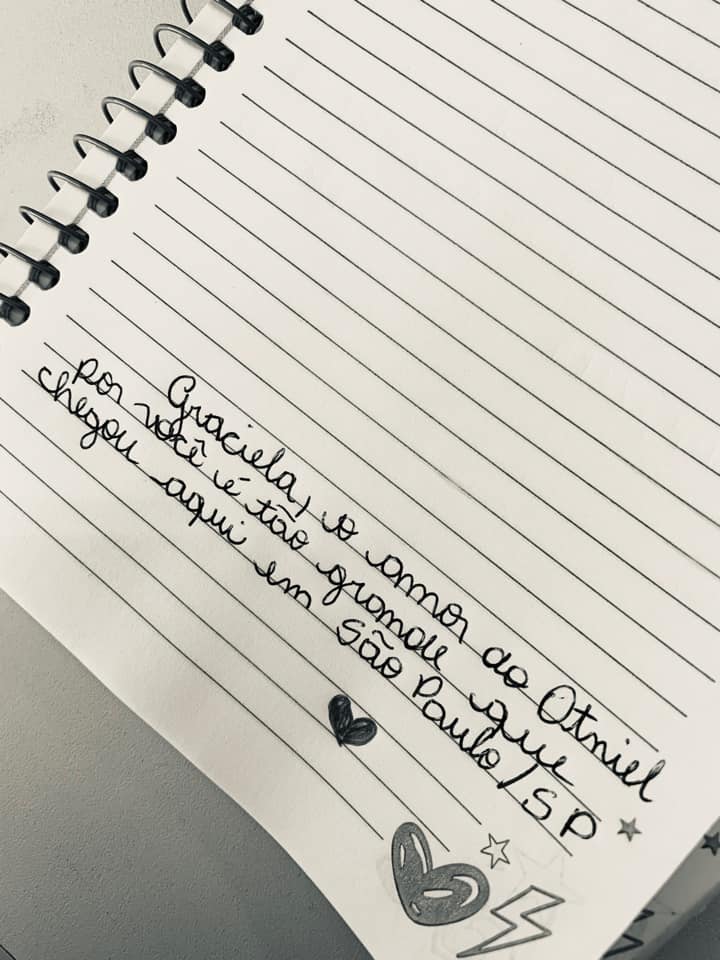 Graciela, o amor do Otniel
por você é tão grande que
chegou aqui em São Paulo/SP